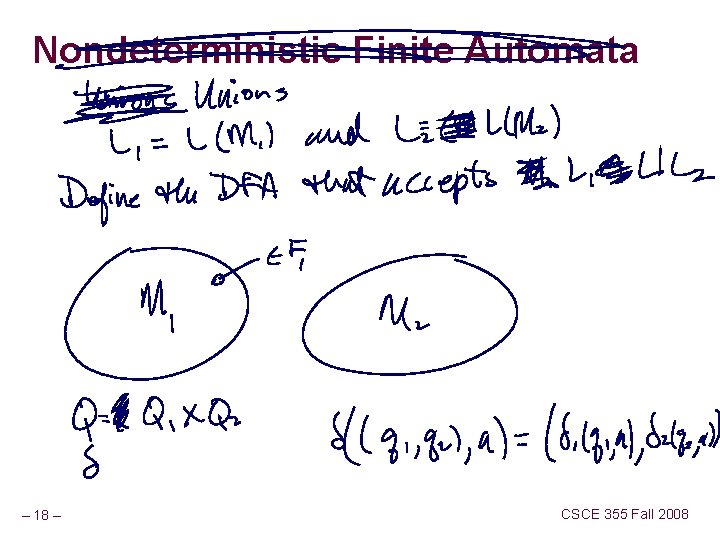 Nondeterministic Finite Automata
Unions Unions
L1 = L(M1) and L2 = L(M2)
Define the DFA that accepts L1 ∪ L2
∈ F1
M1
M2
Q = Q1 × Q2
δ((q1, q2), a) = (δ1(q1, a), δ2(q2, a))
δ
– 18 –
CSCE 355 Fall 2008